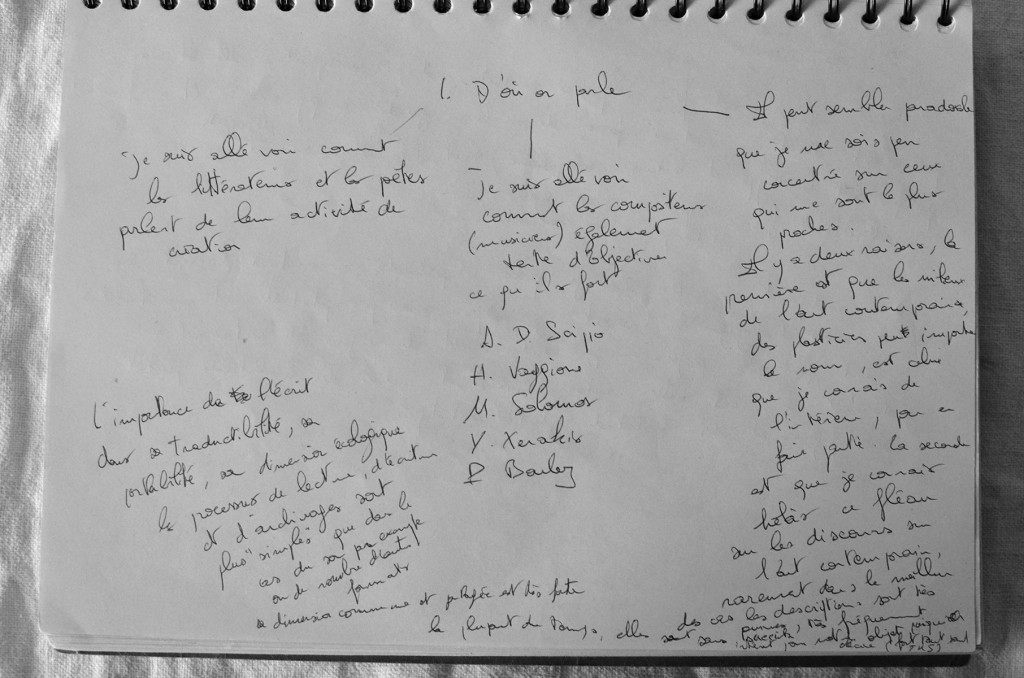 1. D'où on parle
"Je suis allé voir comment
les littérateurs et les poètes
parlent de leur activité de
création
Je suis allé voir
comment les compositeurs
(musiciens) également
tente d'objectiver
ce qu'ils font
A. D. Scipio
H. Vaggione
M. Solomos
Y. Xenakis
P. Boulez
L'importance de l'écrit
dans sa traductibilité, sa
portabilité, sa dimension écologique
le processus de lecture, d'écriture
et d'archivages sont
plus "simples" que dans le
cas du son par exemple
ou de nombre d'autres
formats
sa dimension commune et partagée est très forte
Il peut sembler paradoxale
que je me sois peu
concentré sur ceux
qui me sont le plus
proches.
Il y a deux raisons, la
première est que les milieux
de l'art contemporain,
des plasticiens peut importe
le nom, est celui
que je connais de
l'intérieur, pour en
faire partie. La seconde
est que je connais
hélas ce fléau
sur les discours sur
l'art contemporain,
rarement dans le meilleur
des cas les descriptions sont très
pauvres, très fréquement
la plupart du temps, elles sont sans